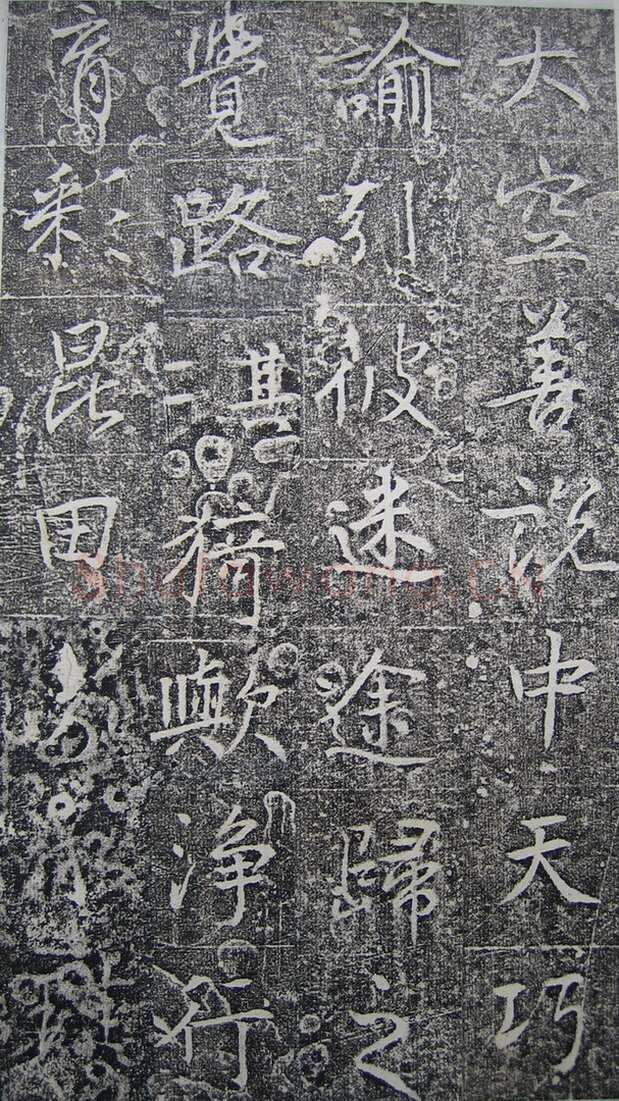 大空善説中天巧
諭引彼迷途歸之
覺路其二猗歟淨行
育彩昆田
Shufawang.CN